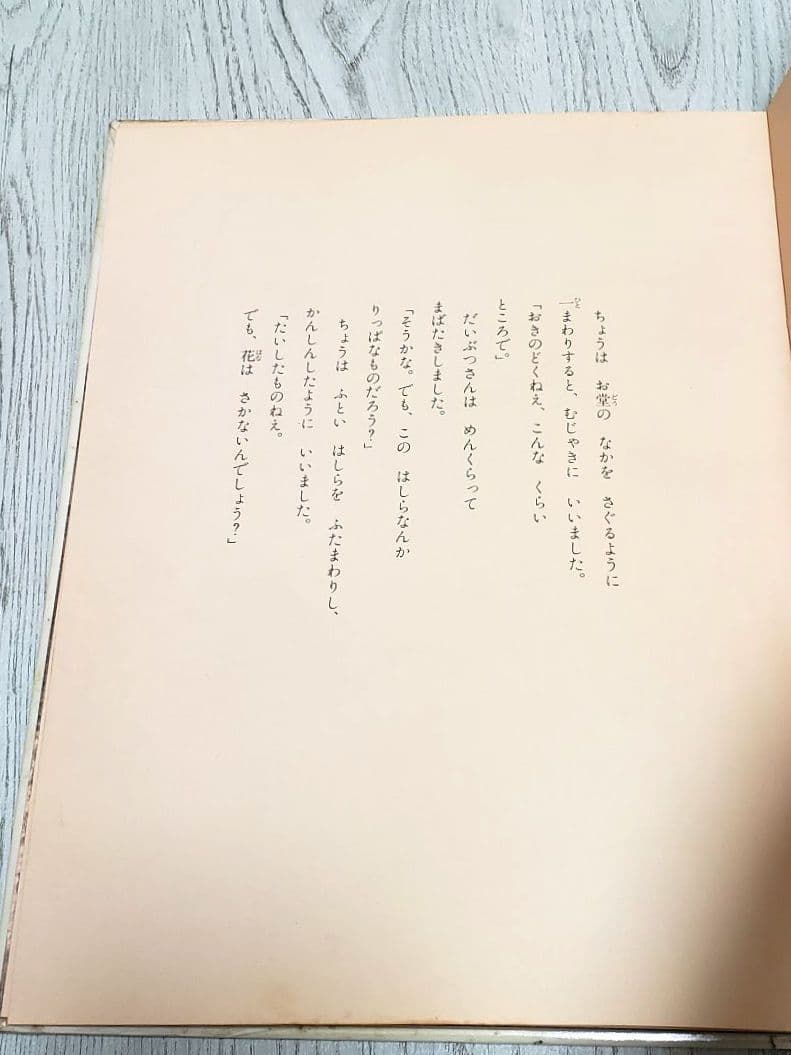 ちょうは　お堂の　なかを　さぐるように
一まわりすると、むじゃきに　いいました。
「おきのどくねえ、こんな　くらい
ところで」。
だいぶつさんは　めんくらって
まばたきしました。
「そうかな。でも、この　はしらなんか
りっぱなものだろう？」
ちょうは　ふとい　はしらを　ふたまわりし、
かんしんしたように　いいました。
「たいしたものねえ。
でも、花は　さかないんでしょう？」